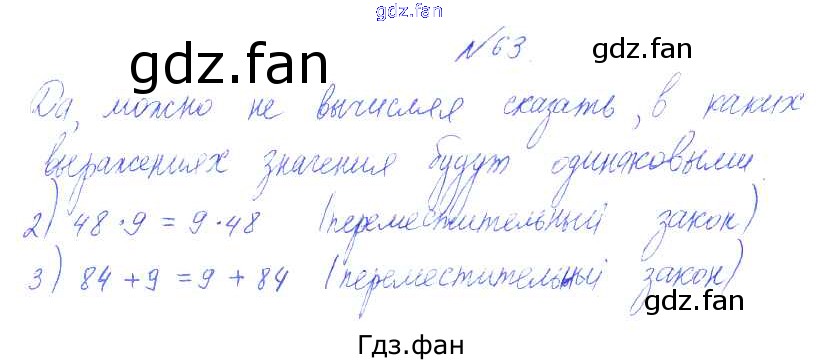 gdz.fan
№63.
gdz.fan
gdz.fan
Да, можно не вычисляя сказать, в каких
выражениях значения будут одинаковыми.
2) 48·9 = 9·48 (переместительный закон)
3) 84+9 = 9+84 (переместительный закон)
gdz.fan
Гдз.фан